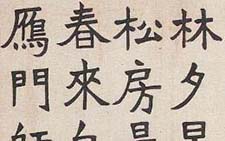 林夕
松房
春來
鴈門